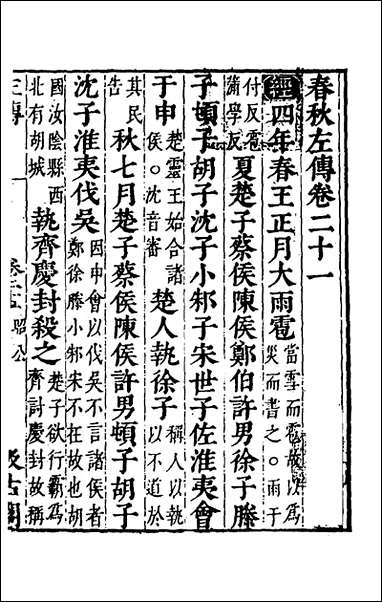 春秋左傳卷二十一
經四年春王正月大雨雹當雪而雹故以為災而書之○雨于
付反雹蒲學反夏楚子蔡侯陳侯鄭伯許男徐子滕
子頓子胡子沈子小邾子宋世子佐淮夷會
于申楚靈王始合諸侯○沈音審楚人執徐子稱人以執以不道於
其民告秋七月楚子蔡侯陳侯許男頓子胡子
沈子淮夷伐吳因申會以伐吳不言諸侯者鄭徐滕小邾宋不在故也胡
國汝陰縣西北有胡城執齊慶封殺之楚子欲行霸為齊討慶封故稱
左傳 昭公 汲古閣